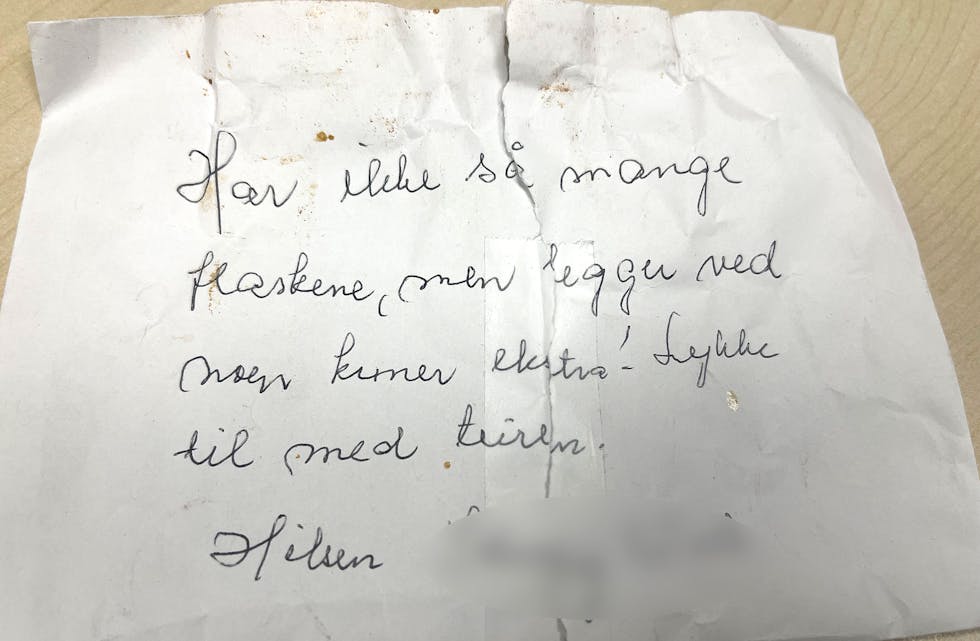 Har ikke så mange
flaskene, men legger ved
noen kroner ekstra! Lykke
til med turen.
Hilsen